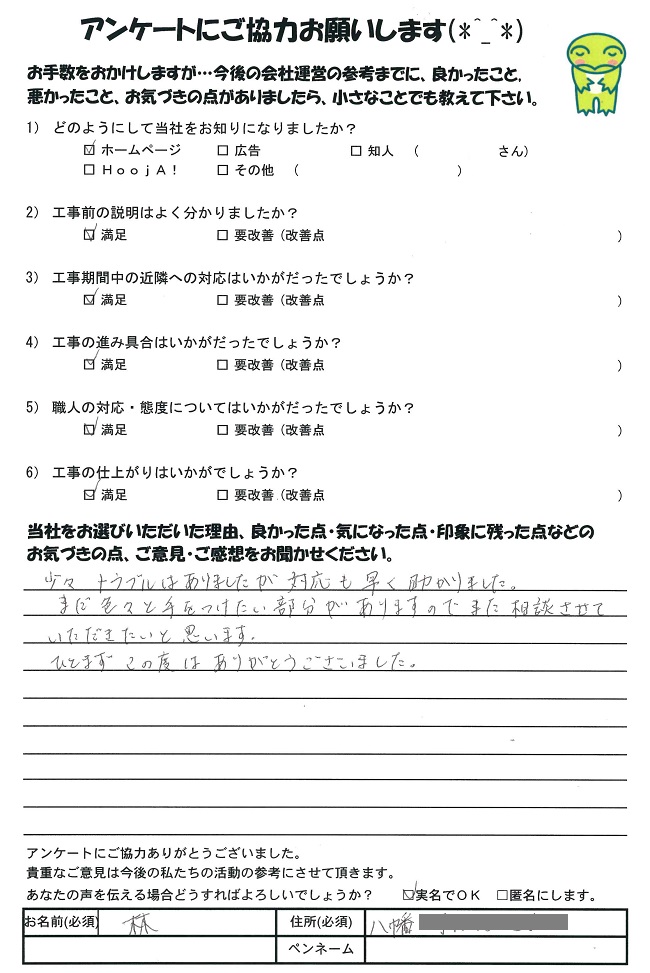 アンケートにご協力お願いします(*^_^*)
お手数をおかけしますが…今後の会社運営の参考までに、良かったこと,
悪かったこと、お気づきの点がありましたら、小さなことでも教えて下さい。
1) どのようにして当社をお知りになりましたか?
☑ ホームページ □ 広告 □ 知人 ( さん)
□ HoojA! □ その他 ( )
2) 工事前の説明はよく分かりましたか?
☑ 満足 □ 要改善(改善点 )
3) 工事期間中の近隣への対応はいかがだったでしょうか?
☑ 満足 □ 要改善(改善点 )
4) 工事の進み具合はいかがだったでしょうか?
☑ 満足 □ 要改善(改善点 )
5) 職人の対応・態度についてはいかがだったでしょうか?
☑ 満足 □ 要改善(改善点 )
6) 工事の仕上がりはいかがでしょうか?
☑ 満足 □ 要改善(改善点 )
当社をお選びいただいた理由、良かった点・気になった点・印象に残った点などの
お気づきの点、ご意見・ご感想をお聞かせください。
少々 トラブルはありましたが 対応も 早く 助かりました。
まだ 色々と 手をつけたい 部分が ありますので また 相談させて
いただきたいと 思います.
ひとまず この度は ありがとうございました。
アンケートにご協力ありがとうございました。
貴重なご意見は今後の私たちの活動の参考にさせて頂きます。
あなたの声を伝える場合どうすればよろしいでしょうか? ☑実名でOK □匿名にします。
お名前(必須) 林 住所(必須) 八幡
ペンネーム